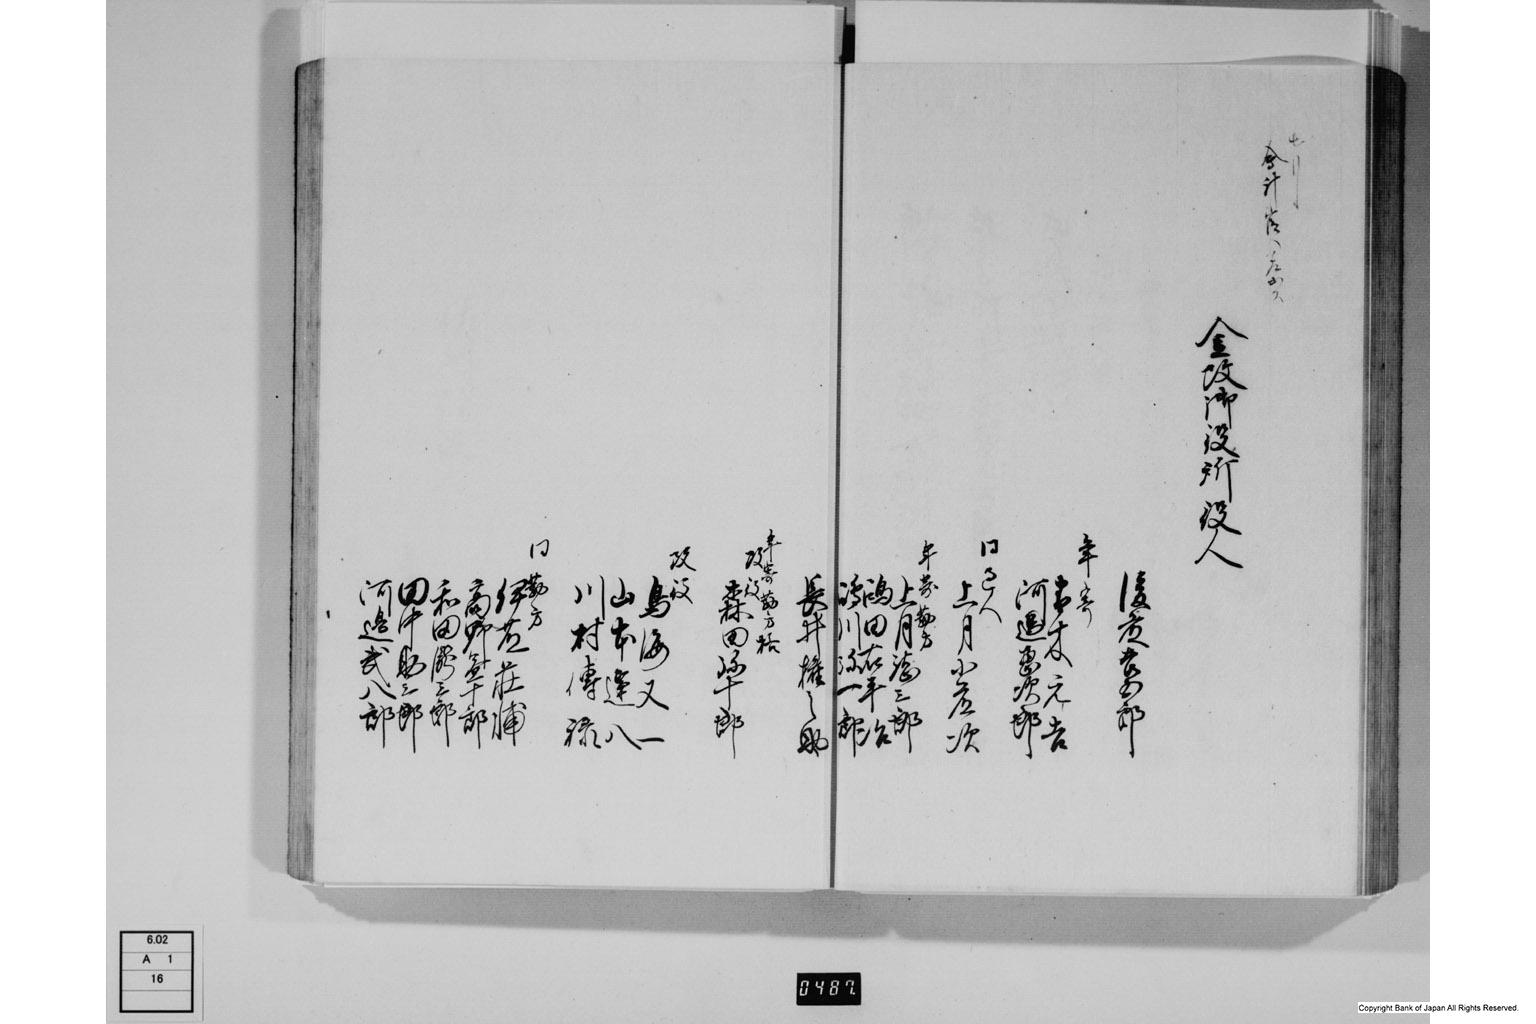 七月
会計官へ差出ス
金改御役所役人
後藤吉五郎
年寄
青木元吉
河邉惠次郎
同過人
上月小左次
年寄勤方
上月諸三郎
鴻田在平治
鴻川弥一郎
長井權之助
年寄勤方格
改役
森田弥十郎
改役
鳥海又一
山本達八
川村傳禄
同勤方
伊藤荘浦
高野金十郎
和田勝三郎
田中助三郎
河邉武八郎
6.02
A 1
16
0487.
Copyright Bank of Japan All Rights Reserved.